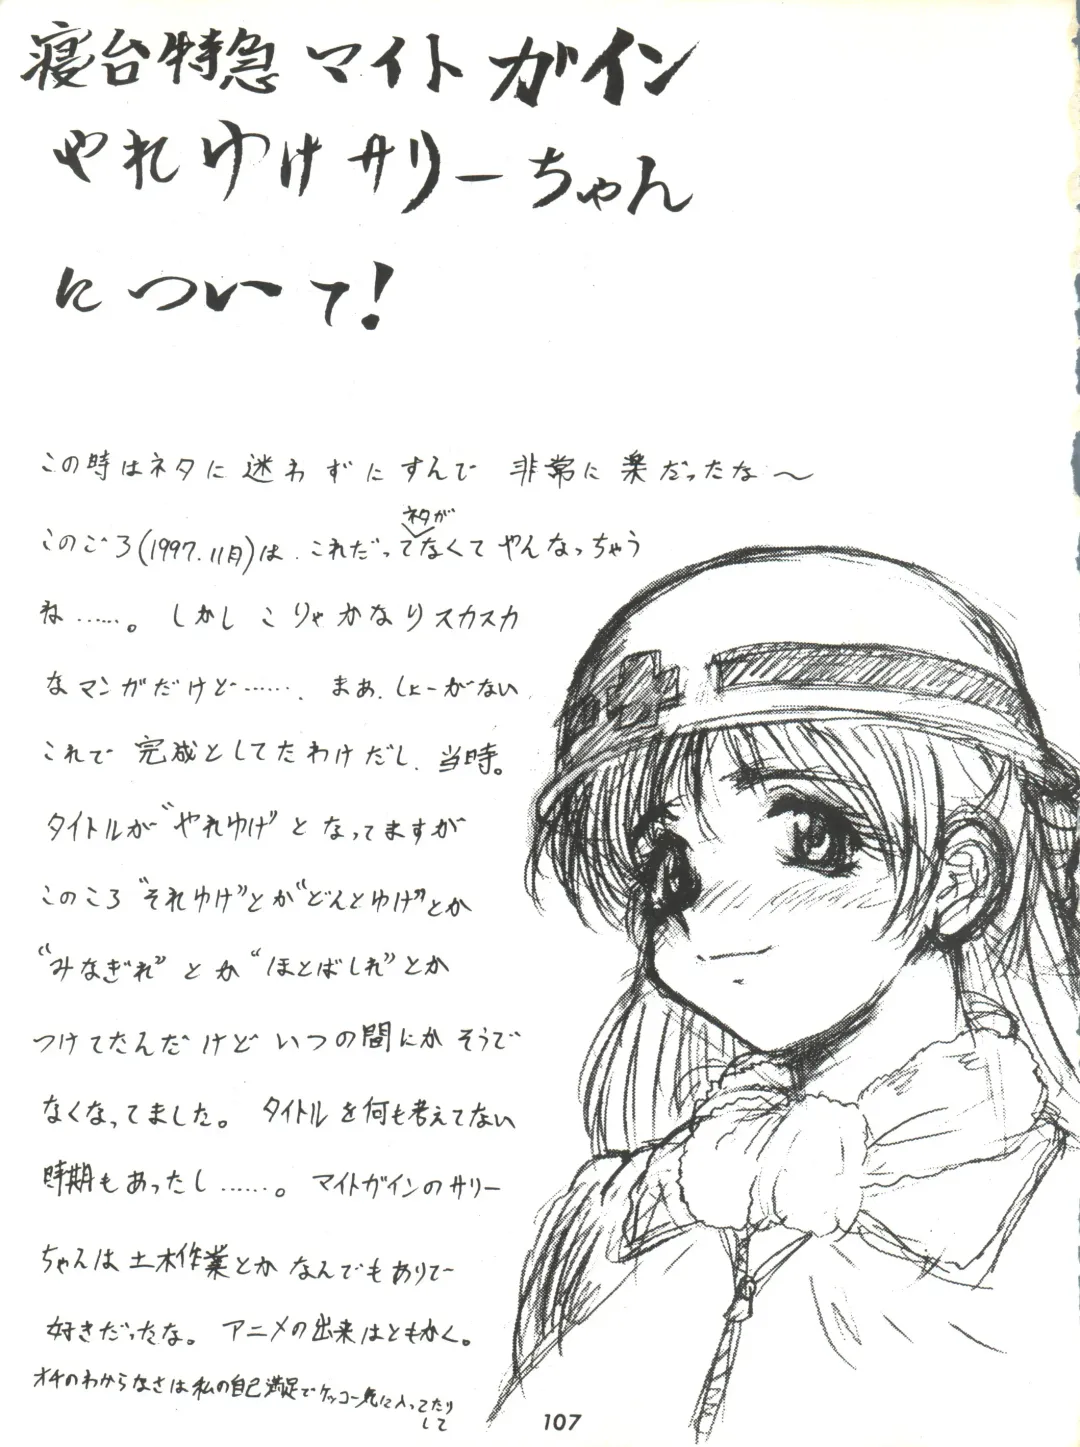 寝台特急 マイトガイン
やれゆけサリーちゃん
について!
この時はネタに迷わずにすんで 非常に楽だったな〜
ネタが
このごろ(1997.11月)は、これだってなくてやんなっちゃう
ね……。しかしこりゃかなりスカスカ
なマンガだけど……、まぁ、しょーがない、
これで完成としてたわけだし、当時。
タイトルが"やれゆけ"となってますが
このころ"それゆけ"とか"どんとゆけ"とか
"みなぎれ"とか"ほとばしれ"とか
つけてたんだけどいつの間にかそうで
なくなってました。タイトルを何も考えてない
時期もあったし……。マイトガインのサリー
ちゃんは土木作業とかなんでもありで
好きだったな。アニメの出来はともかく。
オチのわからなさは私の自己満足でケッコー気に入ってたり
して
107